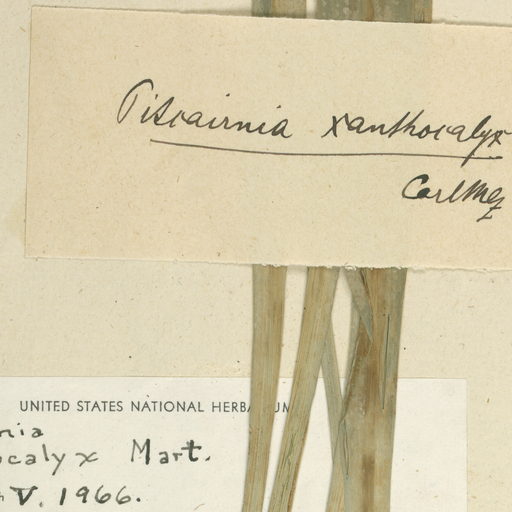 Pitcairnia xanthocalyx
Carl Mez
UNITED STATES NATIONAL HERBARIUM
nia
ocalyx Mart.
V. 1966.